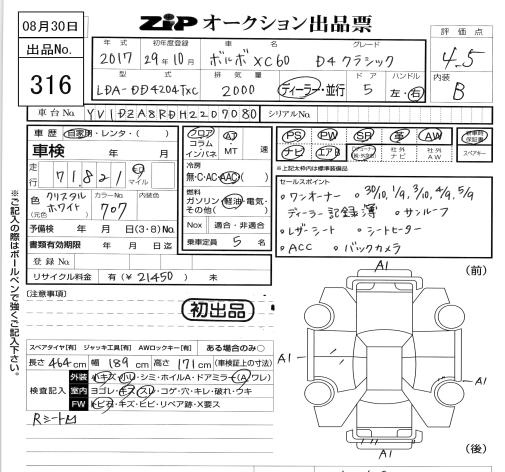 08月30日
出品No.
316
ZIPオークション出品票
評価点
4.5
内装
B
年式 初年度登録 車名 グレード
2017 29年10月 ボルボXC60 D4クラシック
型式 排気量 ドア ハンドル
LDA-DD4204TXC 2000 ディーラー・並行 5 左・右
車台No. YV1DZA8RDH2207080 シリアルNo.
車歴 自家用・レンタ・( )
車検 年 月
走行 71,821 km マイル
色(元色) クリスタルホワイト カラーNo. 707 内装色
予備検 年 月 日(3・8)No.
書類有効期限 年 月 日迄
登録No.
リサイクル料金 有(¥21450) 未
フロア AT 速
コラム
インパネ MT
冷房
無・C・AC・AAC
燃料
ガソリン・軽油・電気・その他( )
Nox 適合・非適合
乗車定員 5 名
PS PW SR 革 AW
ナビ エアB 社外ナビ 社外AW
新車時保証書
スペアキー
※上記太枠は標準装備品
セールスポイント
○ワンオーナー ○30/10, 1/9, 3/10, 4/9, 5/9
ディーラー記録簿 ○サンルーフ
○レザーシート ○シートヒーター
○ACC ○バックカメラ
※ご記入の際はボールペンで強くご記入下さい。
[注意事項]
初出品
スペアタイヤ[有] ジャッキ工具[有] AWロックキー[有] ある場合のみ○
長さ 464cm 幅 189cm 高さ 171cm (車検証上の寸法)
検査記入
外装 小キズ・小U・シミ・ホイルA・ドアミラー(A)ワレ)
室内 ヨゴレ・キズ・スレ・コゲ・穴・キレ・破れ・ウキ
FW トビ石・キズ・ヒビ・リペア跡・X要ス
Rシート凹
A1
(前)
A1
A1
A1
(後)